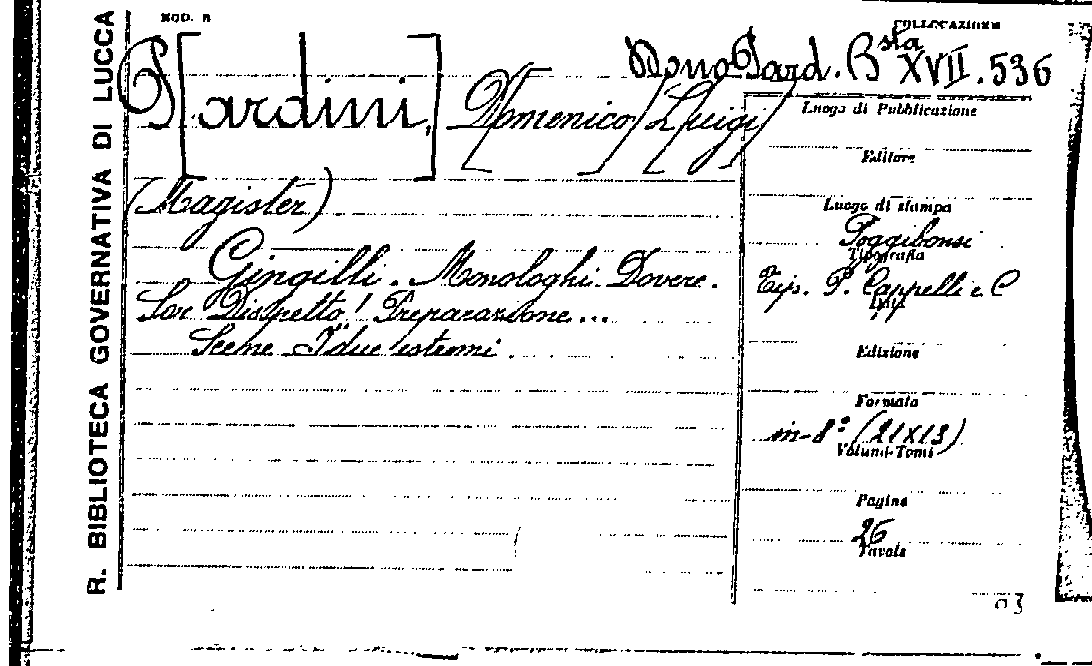 R. BIBLIOTECA GOVERNATIVA DI LUCCA
MOD. B
COLLOCAZIONE
Dono Pard. Bsta XVII.536
P[ardini, Domenico] [Luigi]
(Magister)
Gingilli. Monologhi. Dovere.
Sor Dispetto! Preparazione...
Scene I due estremi.
Luogo di Pubblicazione
Editore
Luogo di stampa
Poggibonsi
Tipografia
Tip. P. Cappelli e C
Data
Edizione
Formato
in-8º (21X13)
Volumi-Tomi
Pagine
26
Tavole